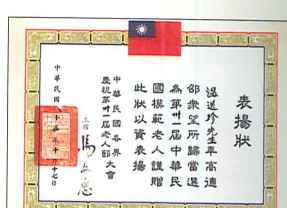 表揚狀
溫送珍先生年高德
邵眾望所歸當選
為第卅一屆中華民
國模範老人謹贈
此狀以資表揚
中華民國各界
慶祝第卅一屆老人節大會
主席
中華民國
十七日